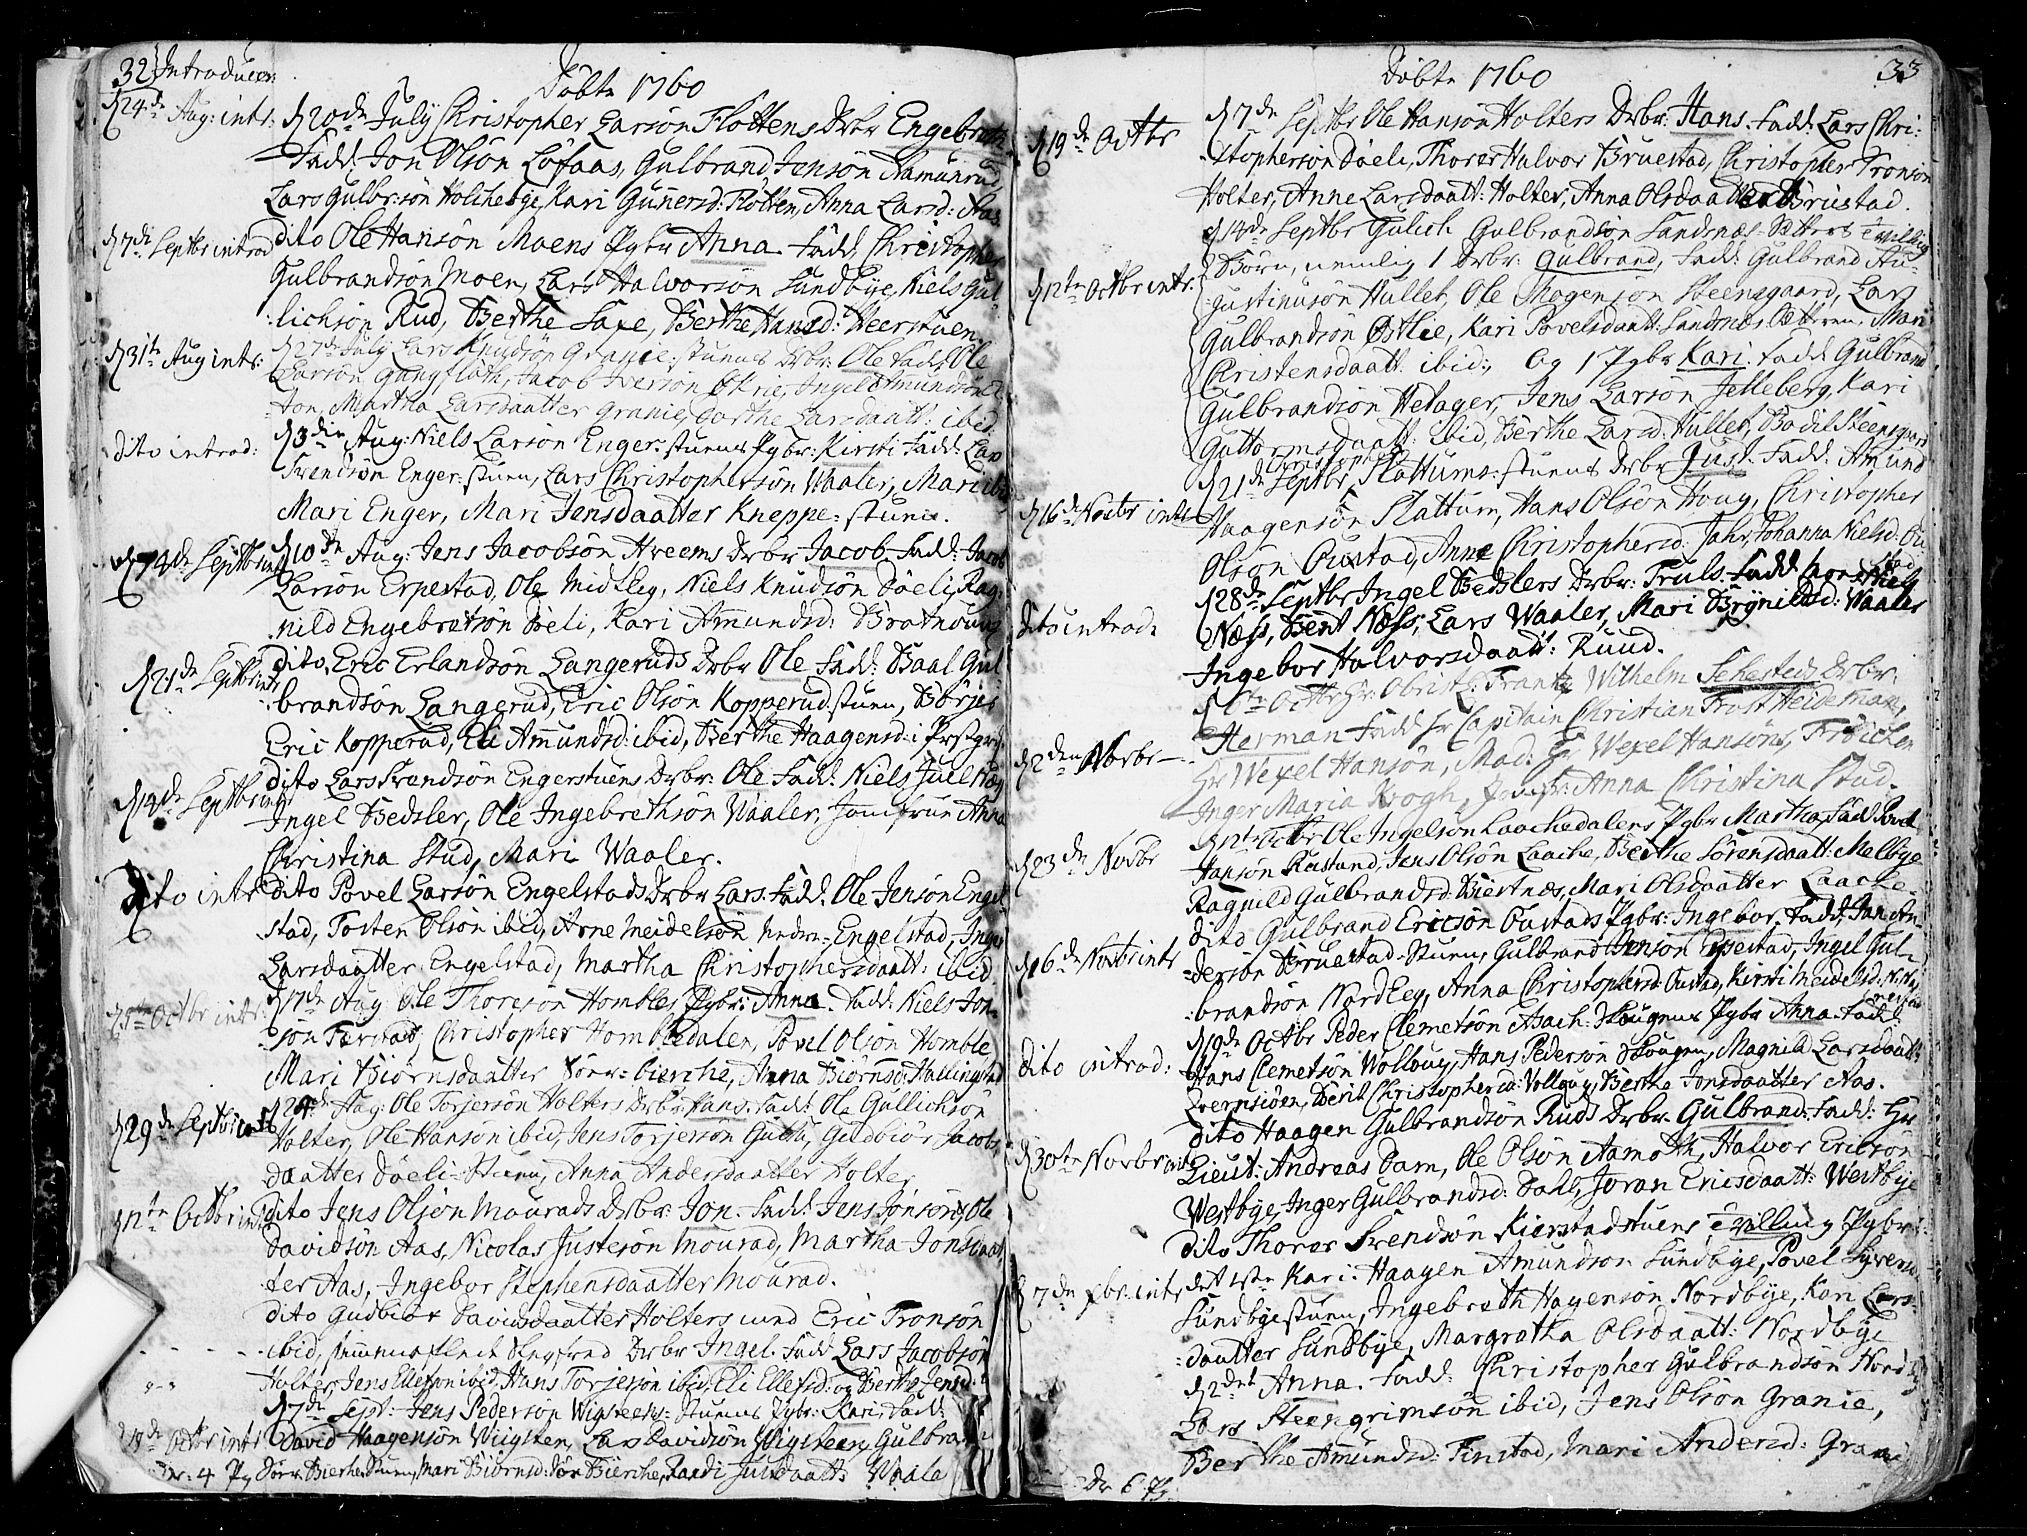 32 Introducer:
Döbte 1760
d 24de Aug: intr:
d 20de July Christopher Larsön Flottens Drbr Engebret
Fadd: Jon Olsön Löfaas, Gulbrand Jensön Ramunrud,
Lars Gulbr:sön Holthebÿe, Kari Gunersd: Flotten, Anna Larsd: Aas
d 7de Septbr introd
dito Ole Hansön Moens Pgbr Anna. Fadd: Christopher
Gulbrandsön Moen, Lars Halvorsön Sundbÿe, Niels Gul-
lichsön Rud, Berthe Saxe, Berthe Hansd: Heerstuen
d 31te Aug intr:
d 27de July Lars Knudsön Granie-stuens Drbr Ole Fadd: Ole
Larsön Gangfloth, Jacob Iversön Ökrie, Ingel Amundsön
Martha Larsdaatter Granie, Berthe Larsdaatt: ibid
dito introd:
d 3die Aug: Niels Larsön Enger-stuens Pgbr: Kirsti Fadd: Lars
Svendsön Enger-stuen, Lars Christophersön Waaler, Mari
Mari Enger, Mari Jensdaatter Kneppe-stuen.
d 14de Septbr intr
d 10de Aug: Jens Jacobsön Hveems Drbr Jacob Fadd: Jacob
Larsön Erpestad, Ole Midtleÿ, Niels Knudsön Döeli, Rag-
nild Engebretsön Döeli, Kari Amundsd: Bratvoug
d 21de Septbr intr
dito, Eric Erlandsön Langeruds Drbr Ole Fadd: Baal Gul
brandsön Langerud, Eric Olsön Kopperudstuen, Börje
Eric Kopperud, Eli Amundsd: ibid, Berthe Haagensd: i
d 14de Septbr intr
dito Lars Svendsön Engerstuens Drbr: Ole Fadd: Niels Juel
Ingel Bedsler, Ole Ingebrethsön Waaler, Jomfrue Anna
Christina Stud, Mari Waaler.
dito intr
dito Povel Larsön Engelstads Drbr Lars. Fadd: Ole Jensön Engel
stad, Tosten Olsön ibid, Arne Meidelsön Nedre-Engelstad, Inger
Larsdaatter Engelstad, Martha Christophersdaatt: ibid
Octbr intr:
d 17de Aug Ole Thoresön Hombles Pgbr: Anna. Fadd: Niels Jon-
sön Færstad, Christopher Hombledalen, Povel Olsön Homble,
Mari Biörnsdaatter Sönr-Bierche, Anna Biörnsd: Hallingstad
d 29de Septbr intr
d 24de Aug: Ole Torjersön Holters Drbr: Hans. Fadd: Ole Gullichsön
Holter, Ole Hansön ibid, Jens Torjersön Guttu, Guldbiör Jacobs
daatter Döeli-Stuen, Anna Andersdaatter Holter
d 12te Octbr intr
dito Jens Olsön Mourads Drbr: Jon. Fadd: Jens Jonsön Ole
Davidsön Aas, Nicolas Justesön Mourad, Martha Jonsdaat
ter Aas, Ingebor Stephensdaatter Mourad.
dito Gudbiör Davidsdaatter Holters med Eric Tronsön
ibid, sammenaflede Drbr Ingel. Fadd: Lars Jacobsön
Holter, Jens Ellefsön ibid, Hans Torjersön ibid, Eli Ellefsd: og Berthe Jensd: i
d 19de Octbr intr
d 7de Sept: Jens Pedersön Wigsteens-stuens Pgbr: Kari, Fadd:
David Haagensön Wiigsten, Lars Davidsön Wigsteen, Gulbrand
Sönr Bierchestuen, Mari Biörnsd: Sör Bierche, Randi Juldaatt: Waale
Dr: 4 Pg
33
Döbte 1760
d 19de Octbr
d 7de Septbr Ole Hansön Holters Drbr: Hans. Fadd: Lars Chri-
stophersön Döeli, Thorer Halvor Bruestad, Christopher Tronsön
Holter, Anne Larsdaatt: Holter, Anna Olsdaatter Bruestad.
d 12te Octbr intr:
d 14de Septbr Gulich Gulbrandsön Sandnæs-Sætters tvilling
Börn, nemlig 1 Drbr: Gulbrand, Fadd: Gulbrand Au-
gustinusön Hullet, Ole Mogensön Steensgaard, Lars
Gulbrandsön Östlie, Kari Povelsdaatt: Sandnæs Sætteren, Mari
Christensdaatt: ibid:, Og 1 Pgbr Kari. Fadd Gulbrand
Gulbrandsön Hetager, Jens Larsön Jelleberg, Kari
Guttormsdaatt: ibid, Berthe Larsd: Hullet, Bodil Steensgaard
d 16de Novbr intr
d 21de Septbr Christopher Slattums-stuens Drbr Just. Fadd: Amund
Haagensön Slattum, Hans Olsön Houg, Christopher
Olsön Oustad, Anne Christophersd: Jahr, Johanna Nielsd: Ou
stad
dito introd:
d 28de Septbr Ingel Bedslers Drbr: Truls. Fadd: Niels
Næss, Bent Næss, Lars Waaler, Mari Brÿnildsd: Waaler
Ingebor Halvorsdaatt: Ruud.
d 2den Novbr
Octbr Hr: Obrist L: Frantz Wilhelm Sehesteds Drbr:
Herman Fadd Hr Capitain Christian Frost Heideman,
Hr Wexel Hansön, Mad: Hr Wexel Hansöns, Fröichen
Inger Maria Krogh, Jomfr: Anna Christina Stud.
d 23de Novbr
d 12te Octbr Ole Ingelsön Laachedalens Pgbr Martha, Fadd: Povel
Hansön Rustand, Jens Olsön Laache, Berthe Sörensdaatt: Melbye
Ragnild Gulbrandsd: Biertnæs, Mari Olsdaatter Laache.
d 16de Novbr intr
dito Gulbrand Ericsön Oustads Pgbr: Ingebor. Fadd: Jan An
dersön Bruestad-Stuen, Gulbrand Jensön Erpestad, Ingel Gul-
brandsön Nordleÿ, Anna Christophersd: Oustad, Kirsti Meidelsd:
dito introd:
d 19de Octbr Peder Clemetsön Asach-Hougens Pgbr Anna. Fadd
Hans Clemetsön Wollouÿ, Hans Pedersön Hougen, Magnild Larsdaatt:
Qvernsiöen, Berit Christophersd: Vollouÿ, Berthe Jonsdaatter Aas.
d 30te Novbr intr
dito Haagen Gulbrandsön Ruds Drbr Gulbrand. Fadd: Hr
Lieut: Andreas Dam, Ole Olsön Aamoth, Halvor Ericsön
Westbÿe, Inger Gulbrandsd: Dahl, Joran Ericsdaatt: Westbÿe
dito Thorer Svendsön Kierstadstuens tvilling Pgbr:
d 7de xbr intr
det 1ste Kari. Haagen Amundsön Sundbye, Povel Syversön
Sundbÿestuen, Ingebreth Hagensön Nordbÿe, Kari Lars-
daatter Sundbÿe, Margretha Olsdaatt: Nordbÿe
d 2det Anna. Fadd: Christopher Gulbrandsön Nord
Lars Steengrimsön ibid, Jens Olsön Granie,
Berthe Amundsd: Finstad, Mari Andersd: Granie
Dr 6 Pg